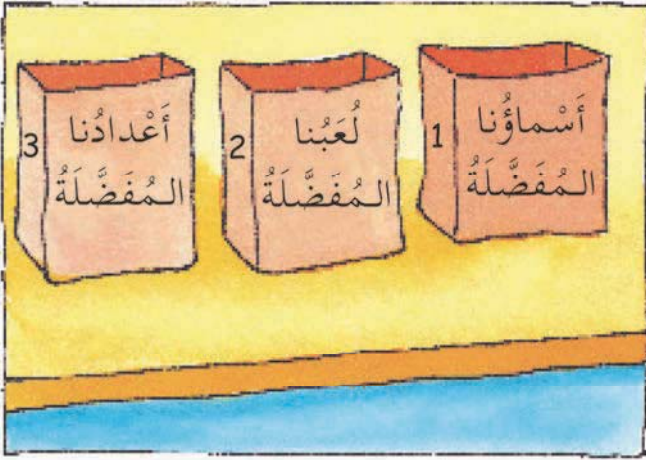 1
أَسْماؤُنا
المُفَضَّلَةُ
2
لُعَبُنا
المُفَضَّلَةُ
3
أَعْدادُنا
المُفَضَّلَةُ